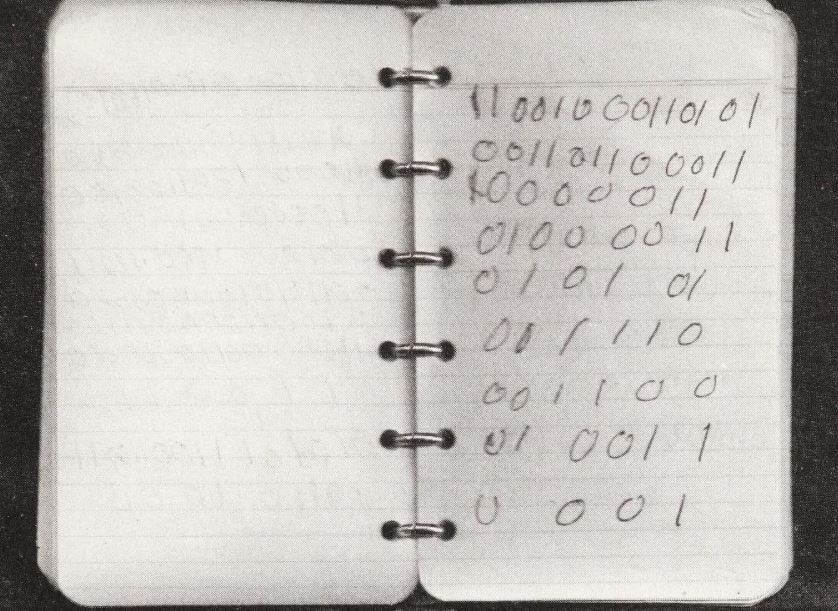 11 0010 0011 01 01
0011 011 00011
1000 0 011
0100 00 11
0 1 01 01
00 1 1 1 0
00 1 1 0 0
01 001 1
0 0 0 1